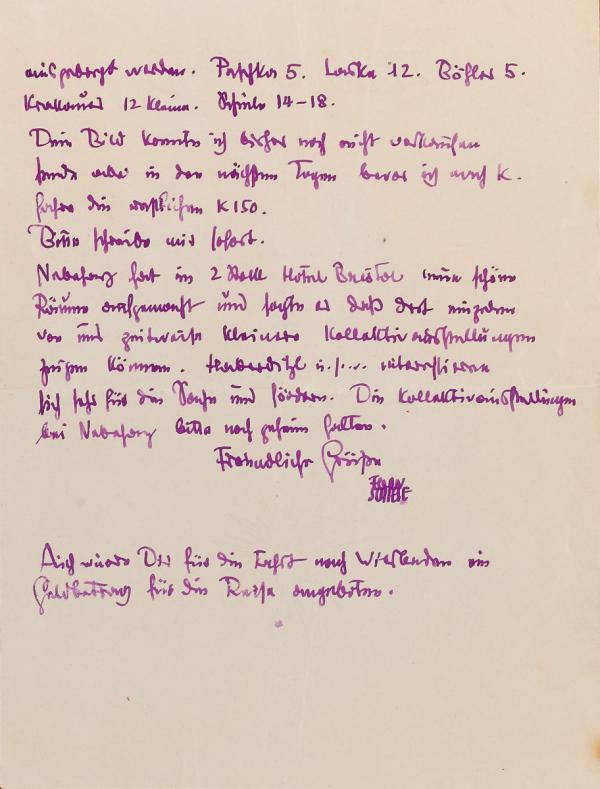 ausgeborgt werden. Peschka 5. Laske 12. Böhler 5.
Krakauer 12 kleine. Schiele 14-18.
Dein Bild konnte ich bisher noch nicht verkaufen
sende aber in den nächsten Tagen bevor ich nach K.
fahre die restlichen K 150.
Bitte schreibe mir sofort.
Nebehay hat im 2 Stock Hotel Bristol schöne
Räume ausgemacht und sagte er daß dort einzelne
von uns zeitweise kleinere Kollektivausstellungen
zeigen können. Haberditzl u.s.w. interessieren
sich sehr für die Sache und fördern. Die Kollektivausstellungen
bei Nebehay bitte noch geheim halten.
Freundliche Grüße
Auch wurde Dir für die Fahrt nach Wiesbaden ein
Geldbetrag für die Reise angeboten.